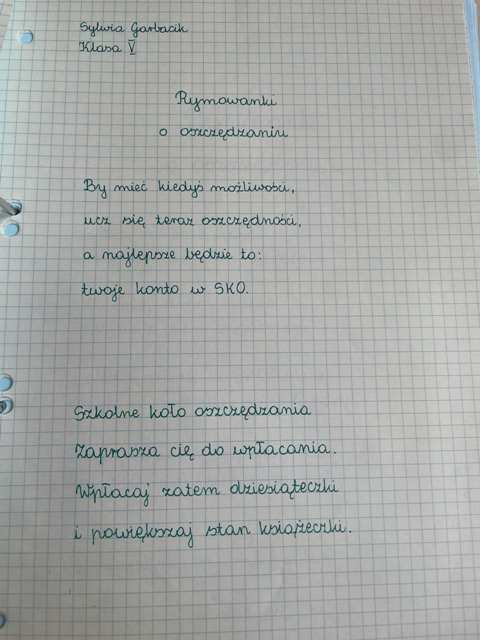 Sylwia Garbacik
Klasa V
Rymowanki
o oszczędzaniu
By mieć kiedyś możliwości,
ucz się teraz oszczędności,
a najlepsze będzie to:
twoje konto w SKO.
Szkolne koło oszczędzania
Zaprasza cię do wpłacania.
Wpłacaj zatem dziesiąteczki
i powiększaj stan książeczki.